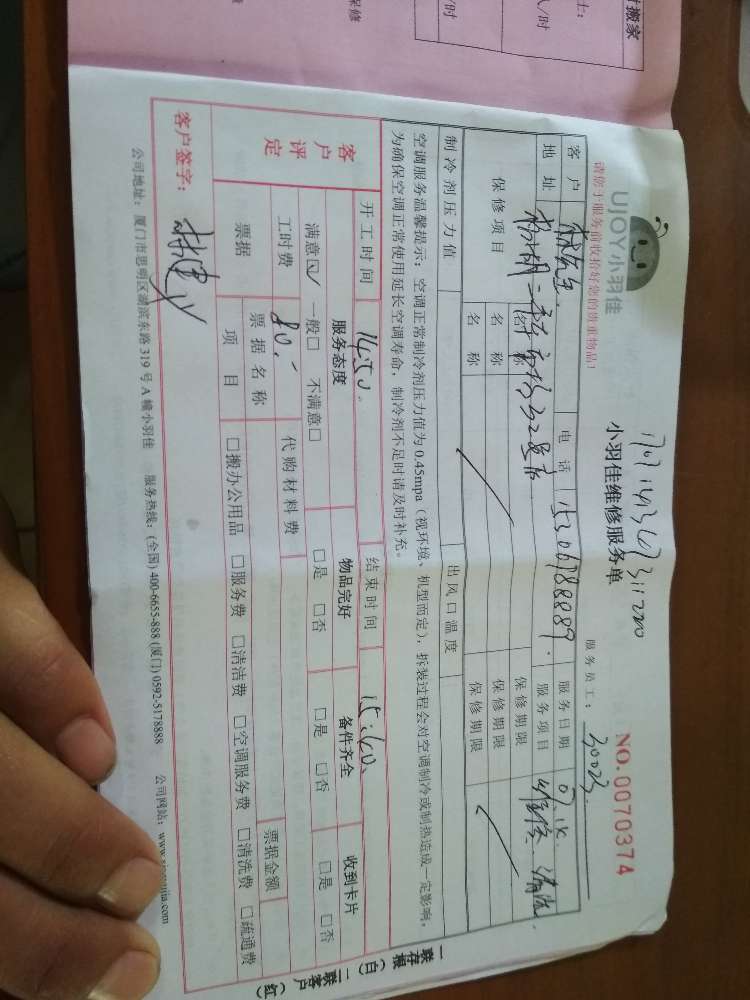 时搬家
请您于服务前收拾好您的贵重物品!
UJOY小羽佳
小羽佳维修服务单
NO.0070374
服务员工: 30023
客户
电话
服务日期
地址
服务项目 维修 清洗
保修项目 名称 保修期限
名称 保修期限
名称 保修期限
制冷剂压力值 出风口温度
空调服务温馨提示: 空调正常制冷剂压力值为0.45mpa(视环境、机型而定), 拆装过程会对空调制冷或制热造成一定影响,
为确保空调正常使用延长空调寿命, 制冷剂不足时请及时补充。
开工时间 14:50. 结束时间 15:40.
客户评定
服务态度 物品完好 备件齐全 收到卡片
满意☑ 一般□ 不满意□ □是 □否 □是 □否 □是 □否
工时费 80.- 代购材料费
票据 票据名称 票据金额
项目 □搬办公用品 □服务费 □清洁费 □空调服务费 □清洗费 □疏通费
客户签字:
公司地址: 厦门市思明区湖滨东路319号A幢小羽佳 服务热线: (全国) 400-6655-888 (厦门) 0592-5178888 公司网站: www.xiaoyujia.com
一联存根(白) 二联客户(红)